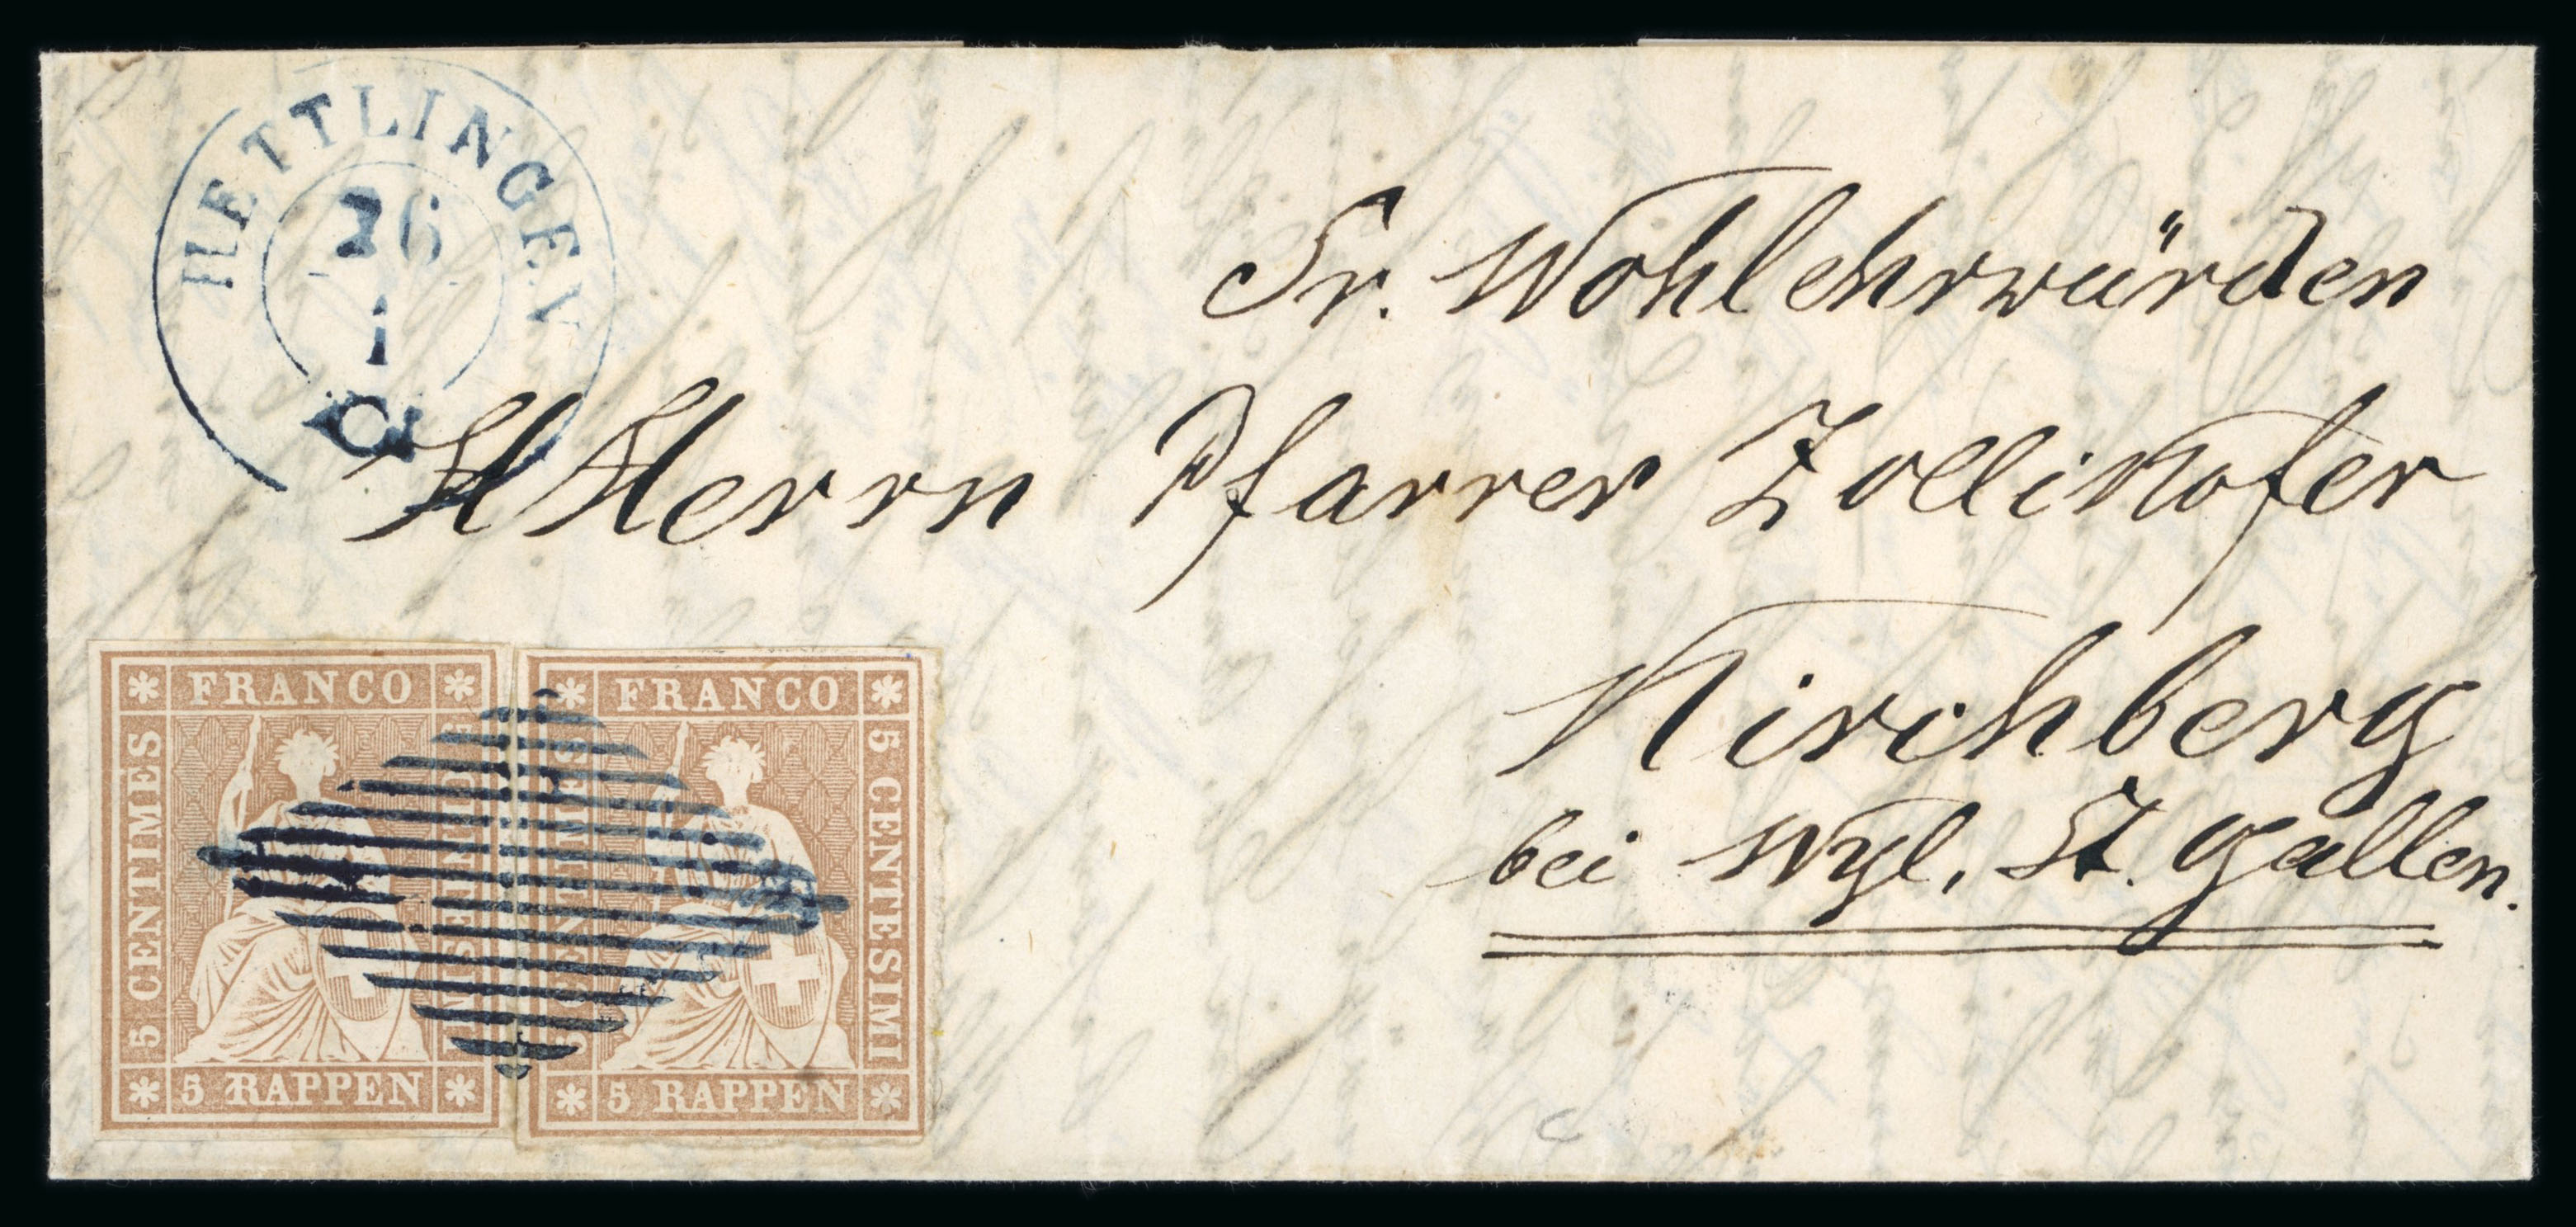 HETTLINGEN
26
1
Sr. Wohlehrwürden
HHerrn Pfarrer Zollikofer
Kirchberg
bei Wyl, St. Gallen.
FRANCO
5 CENTIMES
5 RAPPEN
FRANCO
5 CENTIMES
5 CENTESIMI
5 RAPPEN